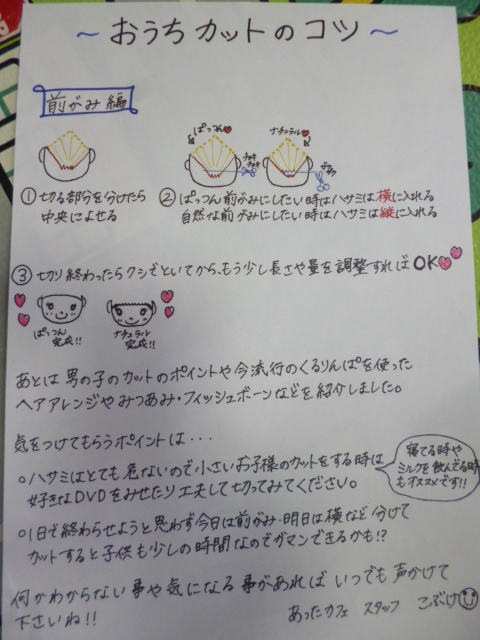 ～おうちカットのコツ～
前がみ編
ぱっつん♥
ナチュラル♥
チョキ
チョキ
①切る部分を分けたら
中央によせる
②ぱっつん前がみにしたい時はハサミは横に入れる
自然な前がみにしたい時はハサミは縦に入れる
③切り終わったらクシでといてから、もう少し長さや量を調整すればOK♥♥
ぱっつん
完成!!
ナチュラル
完成!!
あとは男の子のカットのポイントや今流行のくるりんぱを使った
ヘアアレンジやみつあみ・フィッシュボーンなどを紹介しました。
気をつけてもらうポイントは・・・
○ハサミはとても危ないので小さいお子様のカットをする時は
好きなDVDをみせたり工夫して切ってみてください。
寝てる時や
ミルクを飲んでる時
もオススメです!!
○1日で終わらせようと思わず今日は前がみ・明日は横など分けて
カットすると子供も少しの時間なのでガマンできるかも!?
何かわからない事や気になる事があればいつでも声かけて
下さいね!!
あったカフェ スタッフ こぶけ